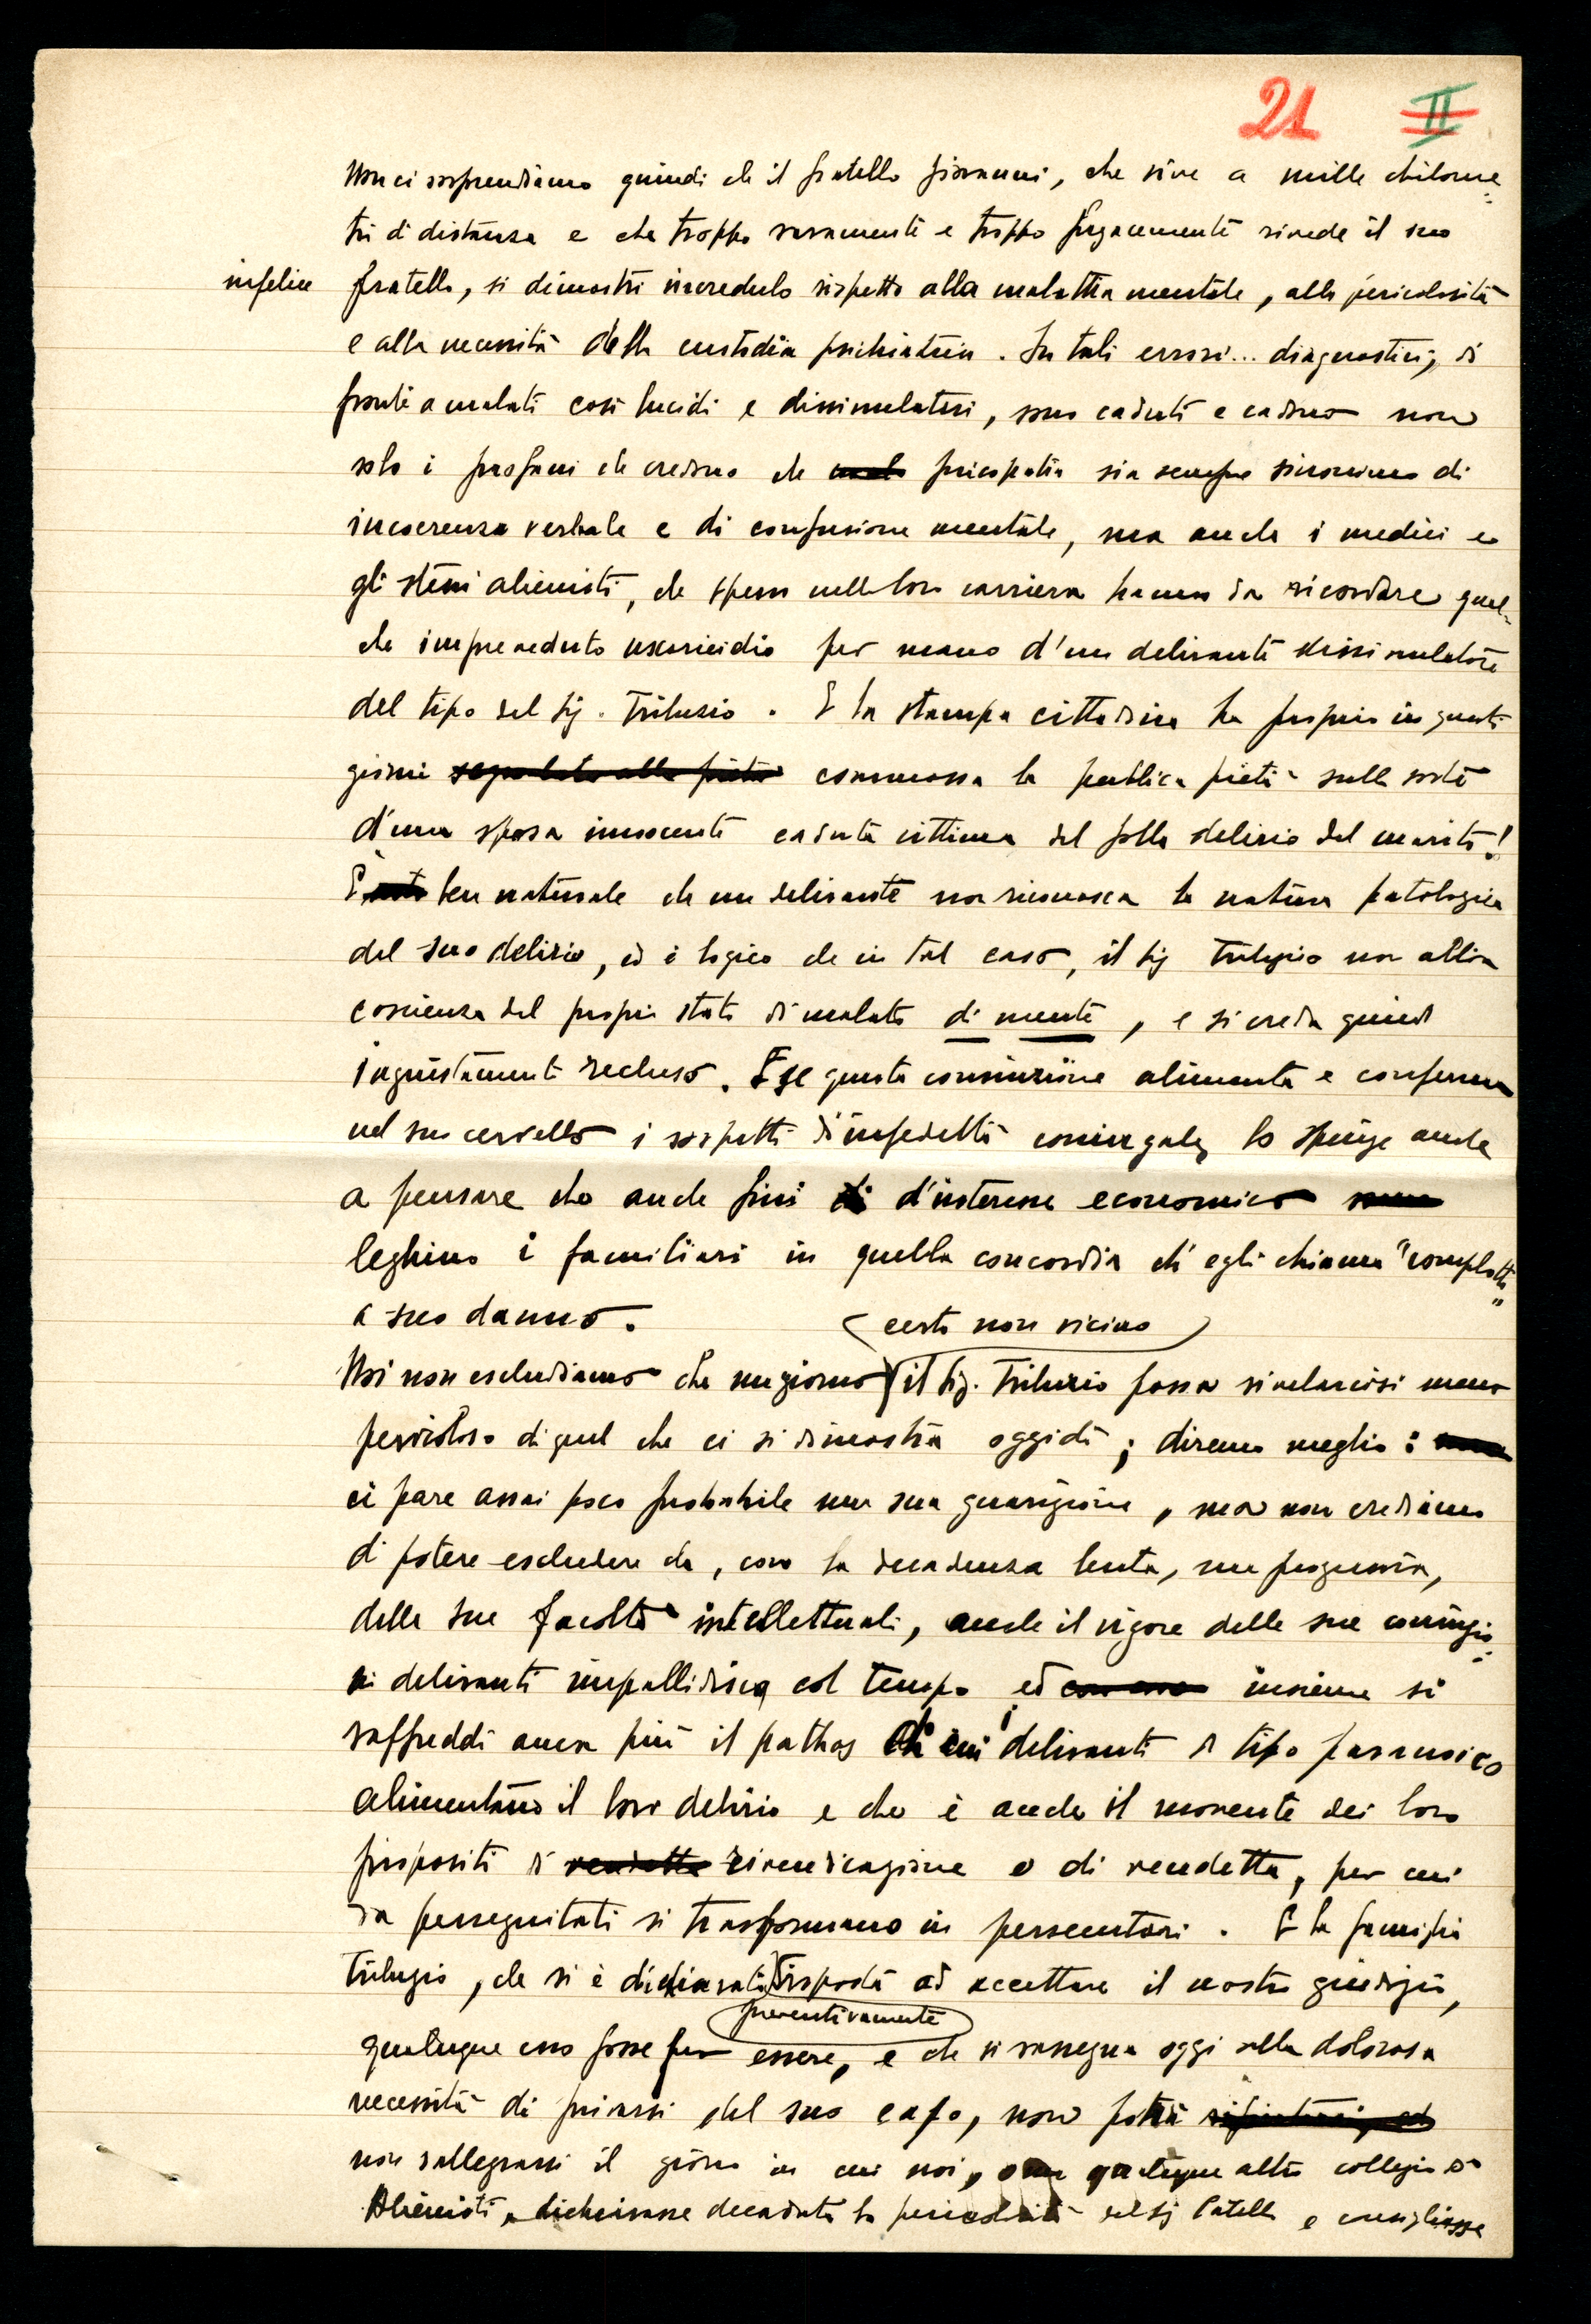 21 II
Non ci sorprendiamo quindi che il fratello Giovanni, che vive a mille chilome=
tri di distanza e che troppo raramente e troppo fugacemente rivede il suo
infelice fratello, si dimostri incredulo rispetto alla malattia mentale, alla pericolosità
e alla necessità della custodia psichiatrica. In tali errori... diagnostici, di
fronte a malati così lucidi e dissimulatori, sono caduti e cadono non
solo i profani che credono che psicopatia sia sempre sinonimo di
incoerenza verbale e di confusione mentale, ma anche i medici e
gli stessi alienisti, che spesso nella loro carriera hanno da ricordare qual-
che impreveduto uxoricidio per mano d'un delirante dissimulatore
del tipo del Sig. Tribuzio. E la stampa cittadina ha proprio in questi
giorni segnalato alla pietà commossa la pubblica pietà sulla sorte
d'una sposa innocente caduta vittima del folle delirio del marito!
È ben naturale che un delirante non riconosca la natura patologica
del suo delirio, ed è logico che in tal caso, il Sig Tribuzio non abbia
coscienza del proprio stato di malato di mente, e si creda quindi
ingiustamente recluso. E se questa convinzione alimenta e conferma
nel suo cervello i sospetti d'infedeltà coniugale, lo spinge anche
a pensare che anche fini di d'interesse economico
leghino i familiari in quella concordia ch'egli chiama "complotto"
a suo danno.
(certo non vicino)
Noi non escludiamo che un giorno il Sig. Tribuzio possa rivelarcisi meno
pericoloso di quel che ci si dimostra oggidì; diremo meglio:
ci pare assai poco probabile una sua guarigione, ma non crediamo
di potere escludere che, con la decadenza lenta, ma progressiva,
delle sue facoltà intellettuali, anche il vigore delle sue convinzio=
ni deliranti impallidisca col tempo ed insieme si
raffreddi ancor più il pathos di cui i deliranti di tipo paranoico
alimentano il loro delirio e che è anche il movente dei loro
propositi di vendetta rivendicazione o di vendetta, per cui
da perseguitati si trasformano in persecutori. E la famiglia
Tribuzio, che si è dichiarata disposta ad accettare il nostro giudizio,
preventivamente
qualunque esso fosse per essere, e che si rassegna oggi alla dolorosa
necessità di privarsi del suo capo, non potrà
non rallegrarsi il giorno in cui noi, o un qualunque altro collegio di
Alienisti, dichiarasse decaduta la pericolosità del Sig e consigliasse